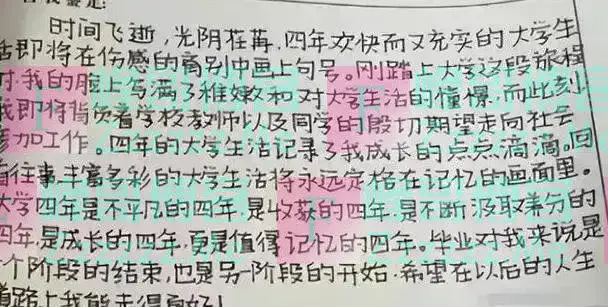 自我鉴定:
时间飞逝,光阴荏苒,四年欢快而又充实的大学生
活即将在伤感的离别中画上句号。刚踏上大学这段旅程
时,我的脸上写满了稚嫩和对大学生活的憧憬,而此刻
我即将背负着学校教师以及同学的殷切期望走向社会
参加工作。四年的大学生活记录了我成长的点点滴滴。回
首往事,丰富多彩的大学生活将永远定格在记忆的画面里。
大学四年是不平凡的四年,是收获的四年,是不断汲取养分的
四年,是成长的四年,更是值得记忆的四年。毕业对我来说是
一个阶段的结束,也是另一阶段的开始.希望在以后的人生
道路上我能走得更好!